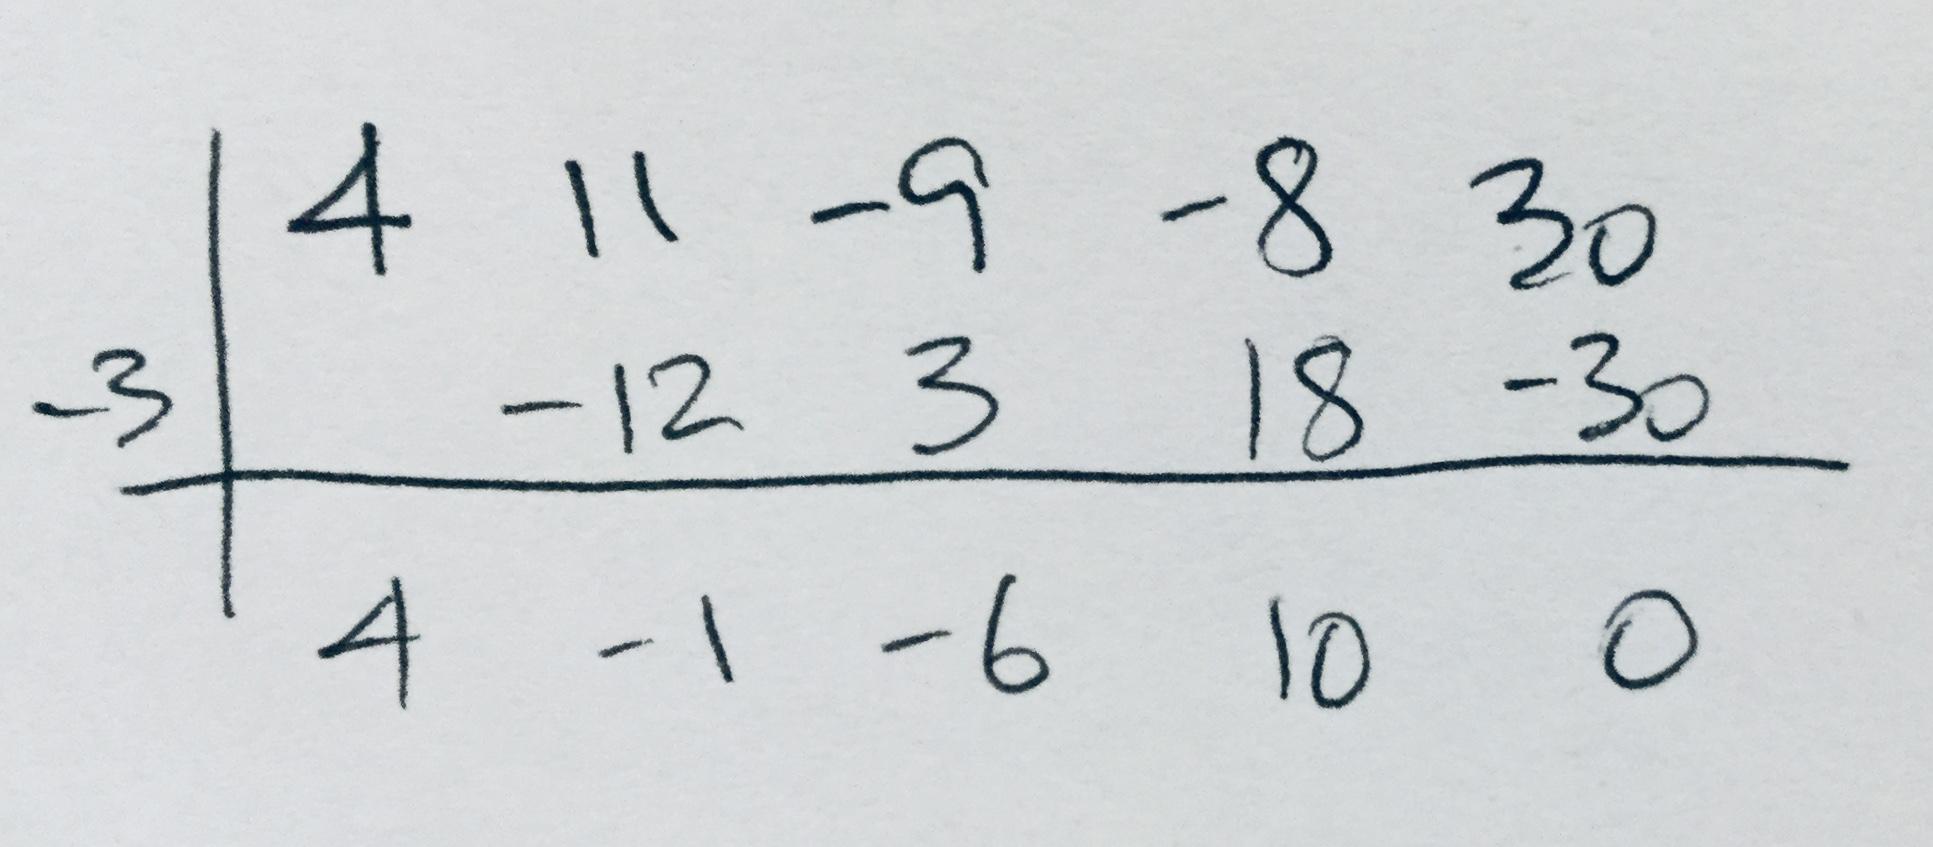 4 11 -9 -8 30
-3 -12 3 18 -30
4 -1 -6 10 0